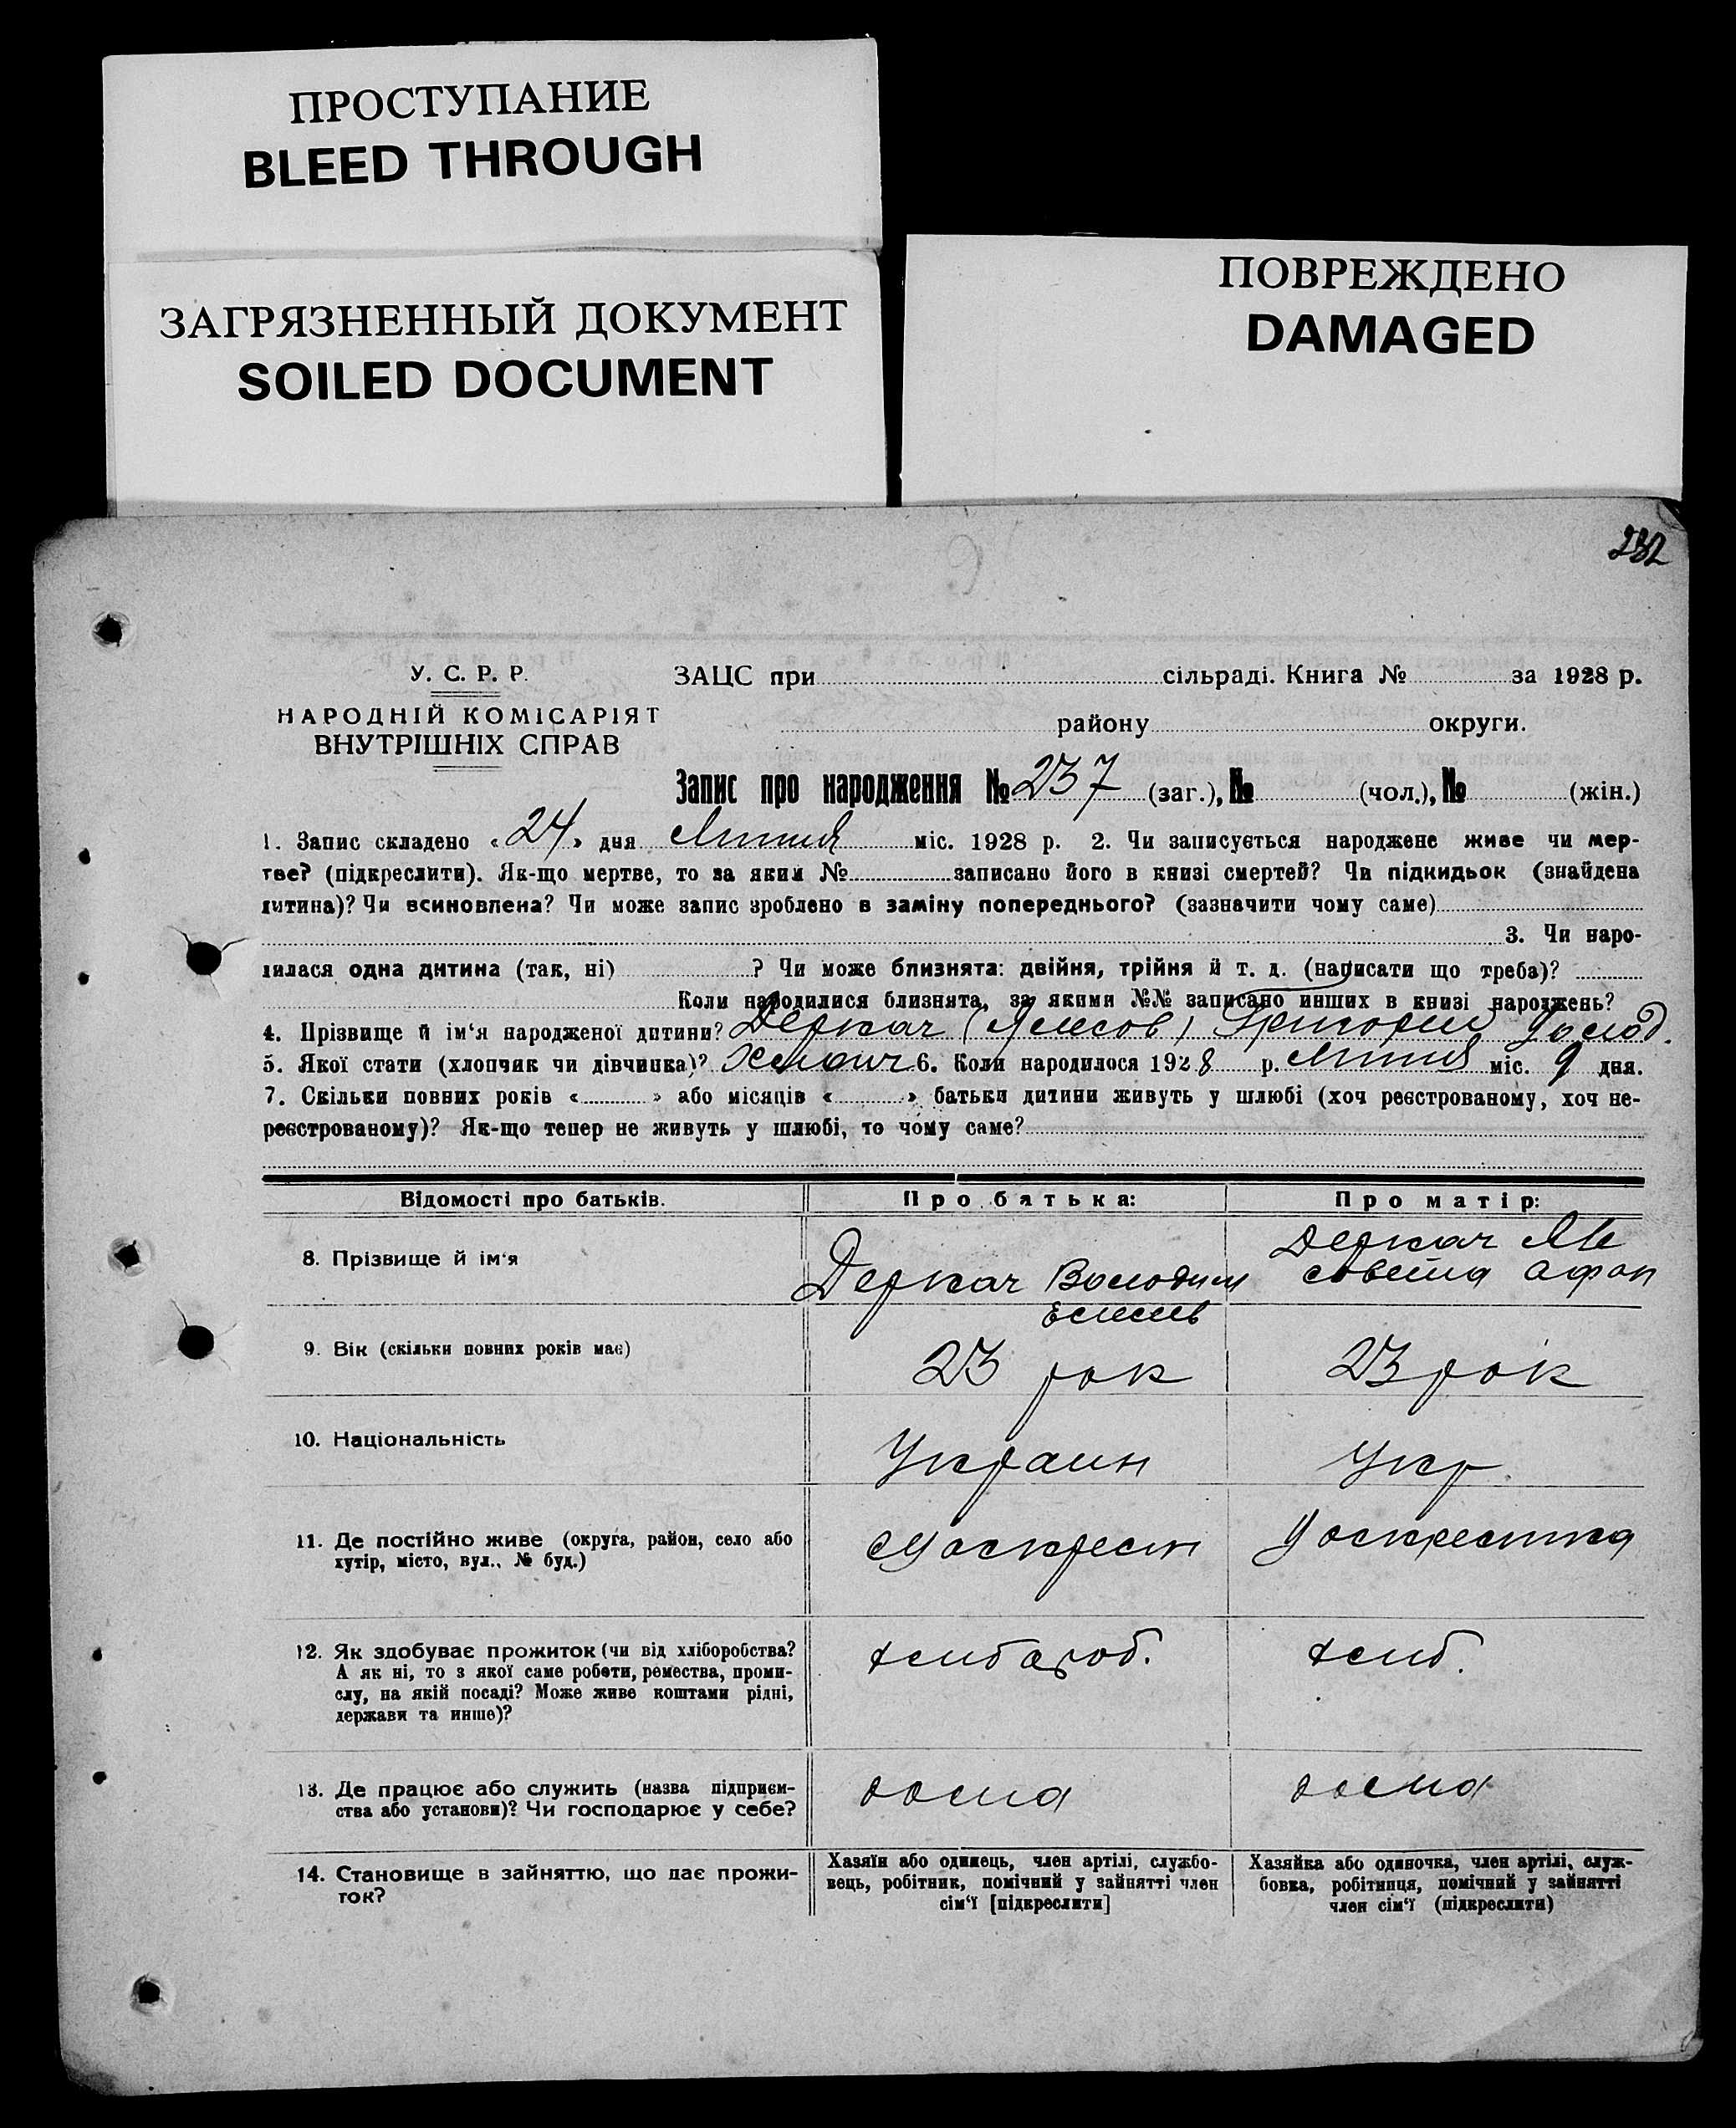 ПРОСТУПАНИЕ
BLEED THROUGH
ЗАГРЯЗНЕННЫЙ ДОКУМЕНТ
SOILED DOCUMENT
ПОВРЕЖДЕНО
DAMAGED
232
У. С. Р. Р.
НАРОДНІЙ КОМІСАРІЯТ
ВНУТРІШНІХ СПРАВ
ЗАЦС при сільраді. Книга № за 1928 р.
району округи.
Запис про народження № 237 (заг.), № (чол.), № (жін.)
1. Запис складено «24» дня Липня міс. 1928 р. 2. Чи записується народжене живе чи мер-
тве? (підкреслити). Як-що мертве, то за яким № записано його в книзі смертей? Чи підкидьок (знайдена
дитина)? Чи всиновлена? Чи може запис зроблено в заміну попереднього? (зазначити чому саме)
3. Чи наро-
дилася одна дитина (так, ні) ? Чи може близнята: двійня, трійня й т. д. (написати що треба)?
Коли народилися близнята, за якими №№ записано инших в книзі народжень?
4. Прізвище й ім‘я народженої дитини? Деркач Григорий
5. Якої стати (хлопчик чи дівчинка)? Хлопч 6. Коли народилося 1928 р. Липня міс. 9 дня.
7. Скільки повних років « » або місяців « » батьки дитини живуть у шлюбі (хоч реєстрованому, хоч не-
реєстрованому)? Як-що тепер не живуть у шлюбі, то чому саме?
Відомості про батьків. Про батька: Про матір:
8. Прізвище й ім‘я
Деркач Володим
Деркач
афан
9. Вік (скільки повних років має)
23 рок 23 рок
10. Національність
Украин Укр.
11. Де постійно живе (округа, район, село або
хутір, місто, вул., № буд.)
12. Як здобуває прожиток (чи від хліборобства?
А як ні, то з якої саме роботи, ремества, проми-
слу, на якій посаді? Може живе коштами рідні,
держави та инше)?
хлиб.
13. Де працює або служить (назва підприєм-
ства або установи)? Чи господарює у себе?
дома дома
14. Становище в зайняттю, що дає прожи-
ток?
Хазяїн або одинець, член артілі, службо-
вець, робітник, помічний у зайнятті член
сім‘ї [підкреслити]
Хазяйка або одиночка, член артілі, служ-
бовка, робітниця, помічний у зайнятті
член сім‘ї (підкреслити)